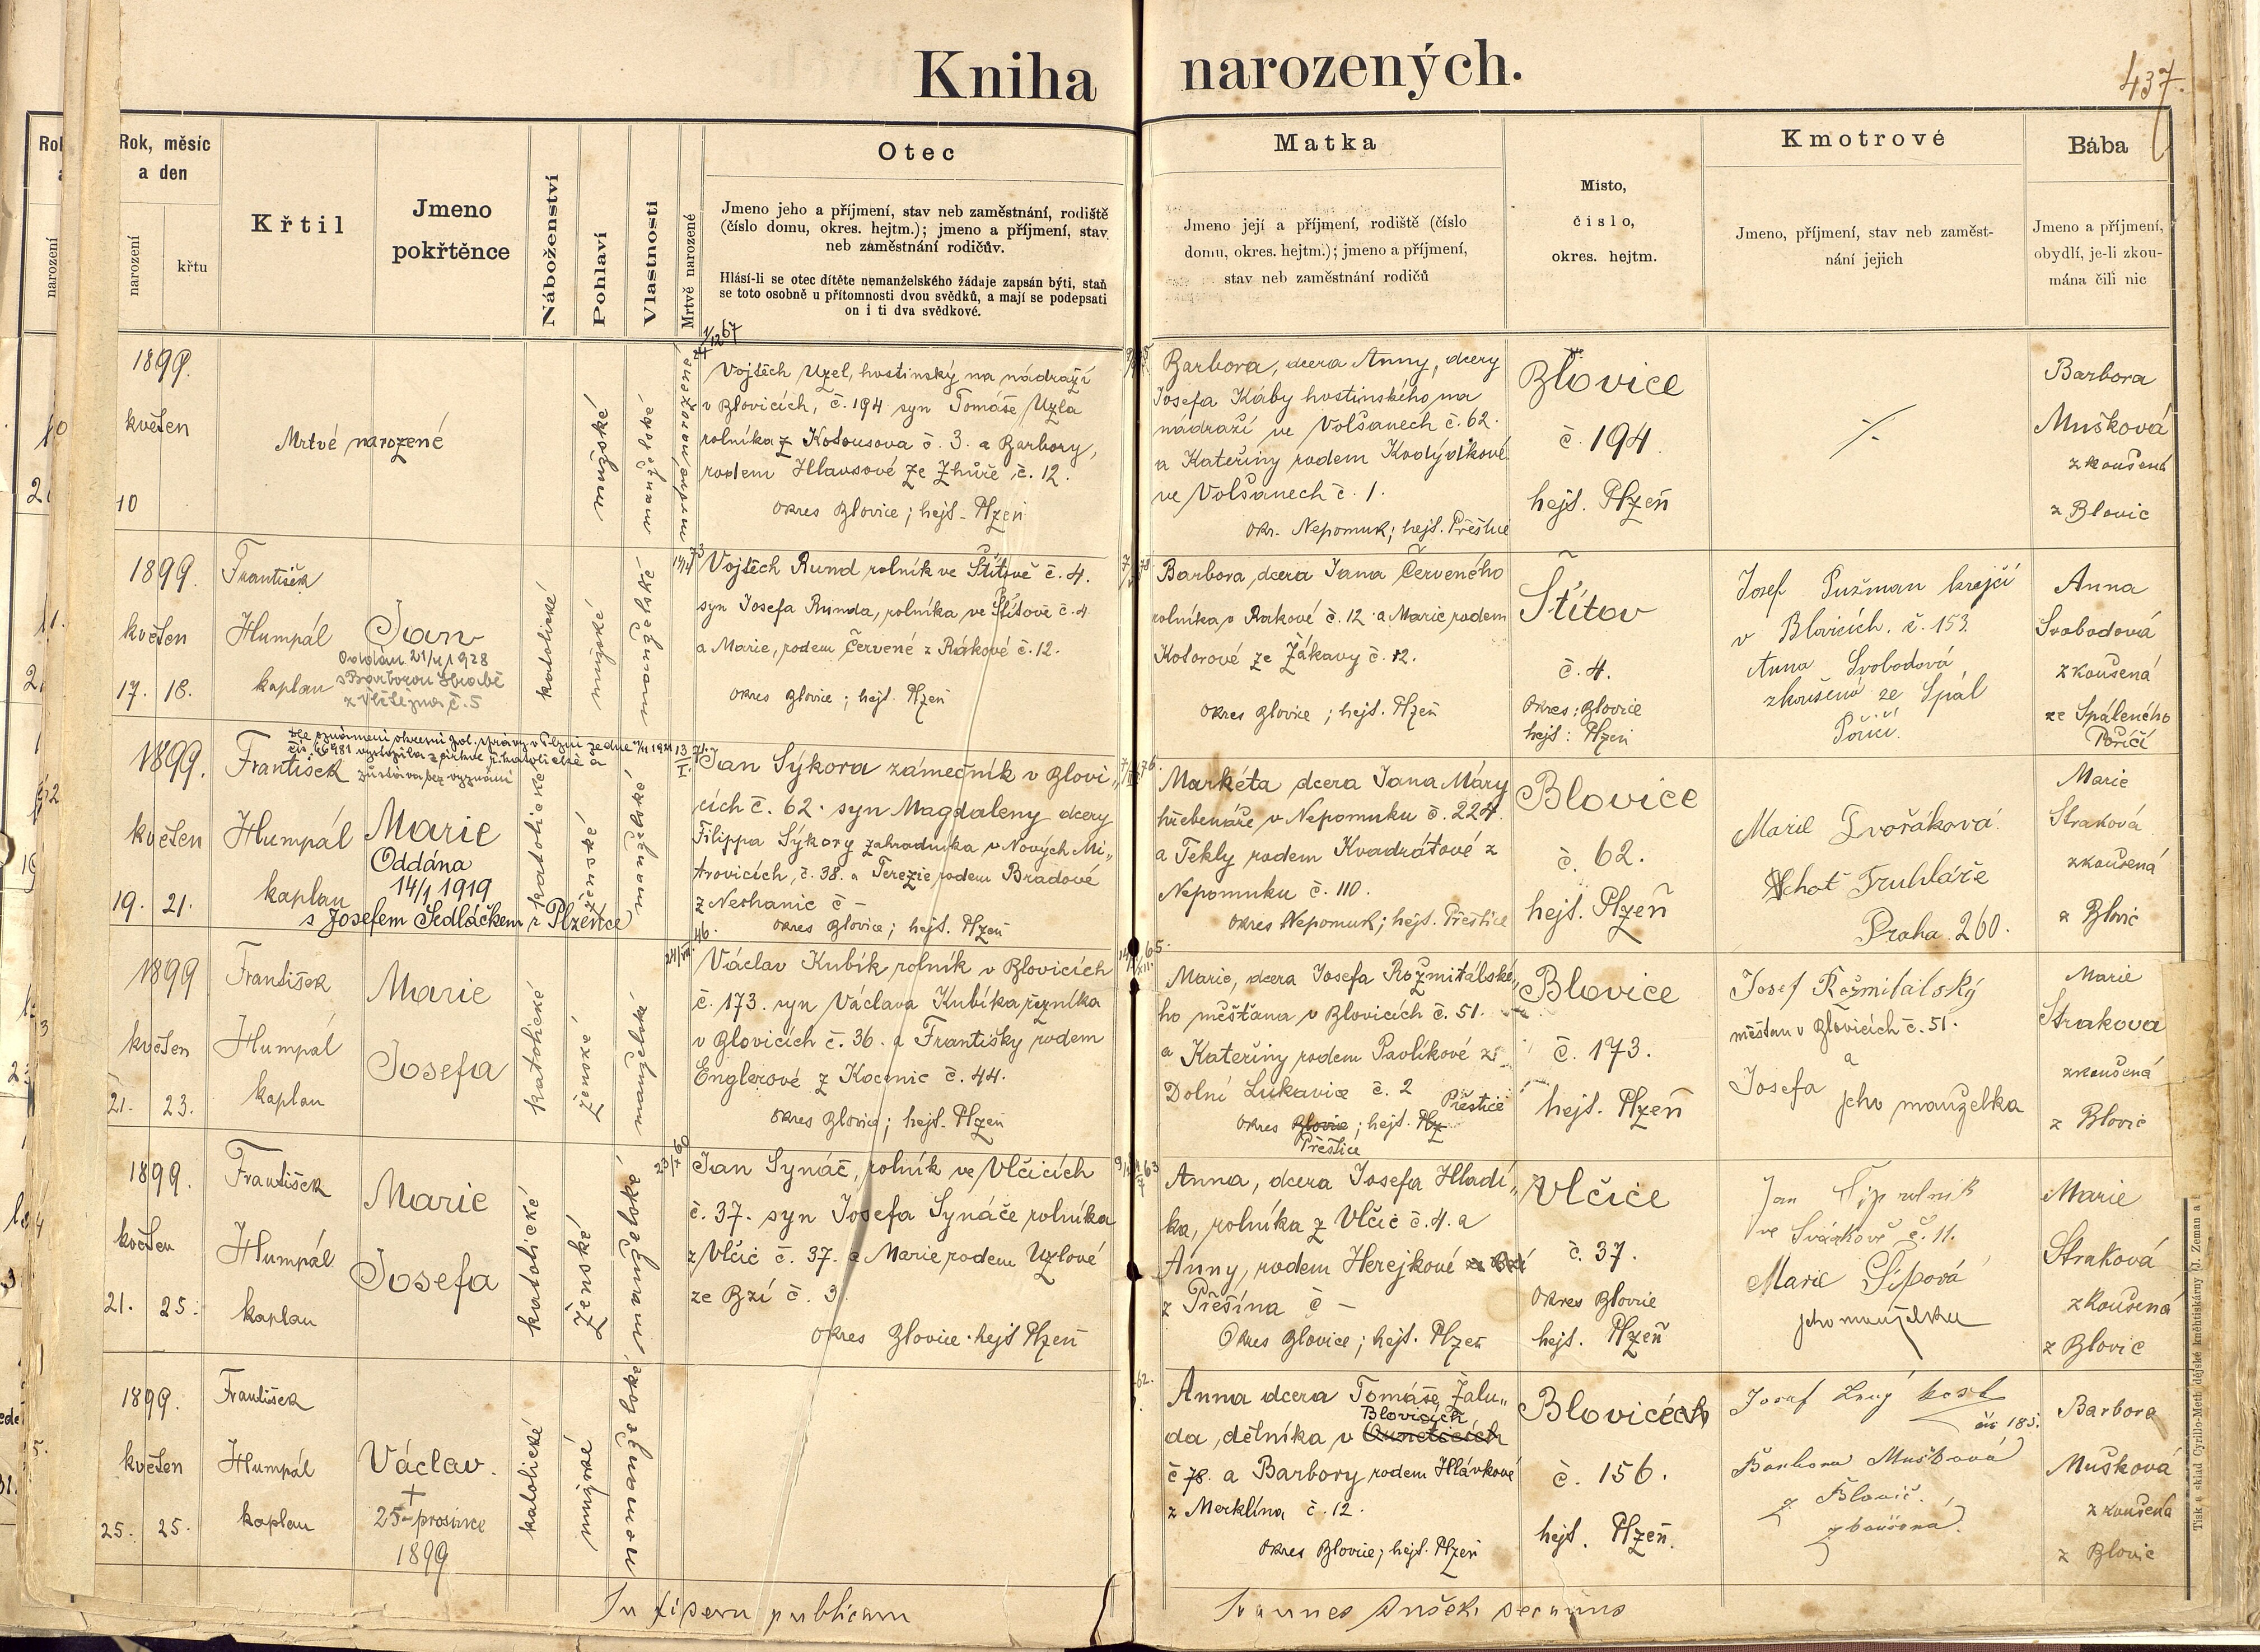 Kniha narozených.
437
Rok, měsíc
a den
narození
křtu
Křtil
Jmeno
pokřtěnce
Náboženství
Pohlaví
Vlastnosti
Mrtvě narozené
Otec
Jmeno jeho a příjmení, stav neb zaměstnání, rodiště
(číslo domu, okres. hejtm.); jmeno a příjmení, stav
neb zaměstnání rodičův.
Hlásí-li se otec dítěte nemanželského žádaje zapsán býti, staň
se toto osobně u přítomnosti dvou svědků, a mají se podepsati
on i ti dva svědkové.
Matka
Jmeno její a příjmení, rodiště (číslo
domu, okres. hejtm.); jmeno a příjmení,
stav neb zaměstnání rodičů
Místo,
číslo,
okres. hejtm.
Kmotrové
Jmeno, příjmení, stav neb zaměst-
nání jejich
Bába
Jmeno a příjmení,
obydlí, je-li zkou-
mána čili nic
1899.
květen
10
Mrtvé narozené
mužské
manželské
mrtvé narozené
Vojtěch Uzel, hostinský na nádraží
v Blovicích, č. 194 syn Tomáše Uzla
rolníka z Kotousova č. 3. a Barbory,
rodem Hlavsové ze Zhůře č. 12.
okres Blovice; hejt. Plzeň
Barbora, dcera Anny, dcery
Josefa Káby hostinského na
nádraží ve Volšanech č. 62.
a Kateřiny rodem Kodýdkové
ve Volšanech č. 1.
okr. Nepomuk; hejt. Přeštice
Blovice
č. 194
hejt. Plzeň
Barbora
Mušková
zkoušená
z Blovic
1899.
květen
17. 18.
František
Humpál
kaplan
Jan
Oddán 21/4 1928
s Barborou
č. 5
katolické
mužské
manželské
Vojtěch Rund rolník ve Štítově č. 4.
syn Josefa Runda, rolníka ve Štítově č. 4
a Marie, rodem Červené z Rákové č. 12.
okres Blovice; hejt. Plzeň
Barbora, dcera Jana Červeného
rolníka v Rakové č. 12 a Marie rodem
Kotorové ze Žákavy č. 12.
okres Blovice; hejt. Plzeň
Štítov
č. 4.
Okres: Blovice
hejt: Plzeň
Josef Pužman krejčí
v Blovicích. č. 153.
Anna Svobodová
zkoušená ze Spál
Poříčí.
Anna
Svobodová
zkoušená
ze Spáleného
Poříčí
1899.
květen
19. 21.
František
Humpál
kaplan
dle oznámení okresní pol. správy v Plzni ze dne 1921
čís. 66481 vystoupila z církve ř. katolické a
zůstává bez vyznání
Marie
Oddána
14/1 1919
s Josefem Sedláčkem z Plzence
katolické
ženské
manželské
Jan Sýkora zámečník v Blovi„
cích č. 62. syn Magdaleny dcery
Filippa Sýkory zahradníka v Nových Mi„
trovicích, č. 38. a Terezie rodem Bradové
z Neohanic č –
okres Blovice; hejt. Plzeň
Markéta dcera Jana Máry
hřebenáře v Nepomuku č. 224.
a Tekly rodem Kvadrátové z
Nepomuku č. 110.
okres Nepomuk; hejt. Přeštice
Blovice
č. 62.
hejt. Plzeň
Marie Dvořáková
choť Truhláře
Praha 260.
Marie
Straková
zkoušená
z Blovic
1899
květen
21. 23.
František
Humpál
kaplan
Marie
Josefa
katolické
ženské
manželské
Václav Kubík rolník v Blovicích
č. 173. syn Václava Kubíka řezníka
v Blovicích č. 36. a Františky rodem
Englerové z Kocenic č. 44.
okres Blovice; hejt. Plzeň
Marie, dcera Josefa Rožmitálské„
ho měšťana v Blovicích č. 51.
a Kateřiny rodem Pavlíkové z
Dolní Lukavice č. 2
okres Blovice; hejt. Plz Přeštice
Přeštice
Blovice
č. 173.
hejt. Plzeň
Josef Rožmitalský
měšťan v Blovicích č. 51.
a
Josefa
jeho manželka
Marie
Straková
zkoušená
z Blovic
1899.
květen
21. 25.
František
Humpál
kaplan
Marie
Josefa
katolické
ženské
manželské
Jan Synáč, rolník ve Vlčicích
č. 37. syn Josefa Synáče rolníka
z Vlčic č. 37. a Marie rodem Uzlové
ze Bzí č. 3
okres Blovice hejt Plzeň
Anna, dcera Josefa Hladí„
ka, rolníka z Vlčic č. 4. a
Anny, rodem Herejkové ze Bzí
z Přešína č –
Okres Blovice; hejt. Plzeň
Vlčice
č. 37.
okres Blovice
hejt. Plzeň
Jan Šíp rolník
ve č. 11.
Marie Šípová
jeho manželka
Marie
Straková
zkoušená
z Blovic
1899.
květen
25. 25.
František
Humpál
kaplan
Václav.
+
25 prosince
1899
katolické
mužské
nemanželské
Anna dcera Tomáše Žalu„
da, dělníka v Blovicích
č 78. a Barbory rodem Hlávkové
z Merklína č. 12.
okres Blovice; hejt. Plzeň
Blovicích
č. 156.
hejt. Plzeň.
Josef
čís 185.
Barbora Mušková
z Blovic.
zkoušená.
Barbora
Mušková
zkoušená
z Blovic
In fidem publicam
Joannes Dušek, decanus